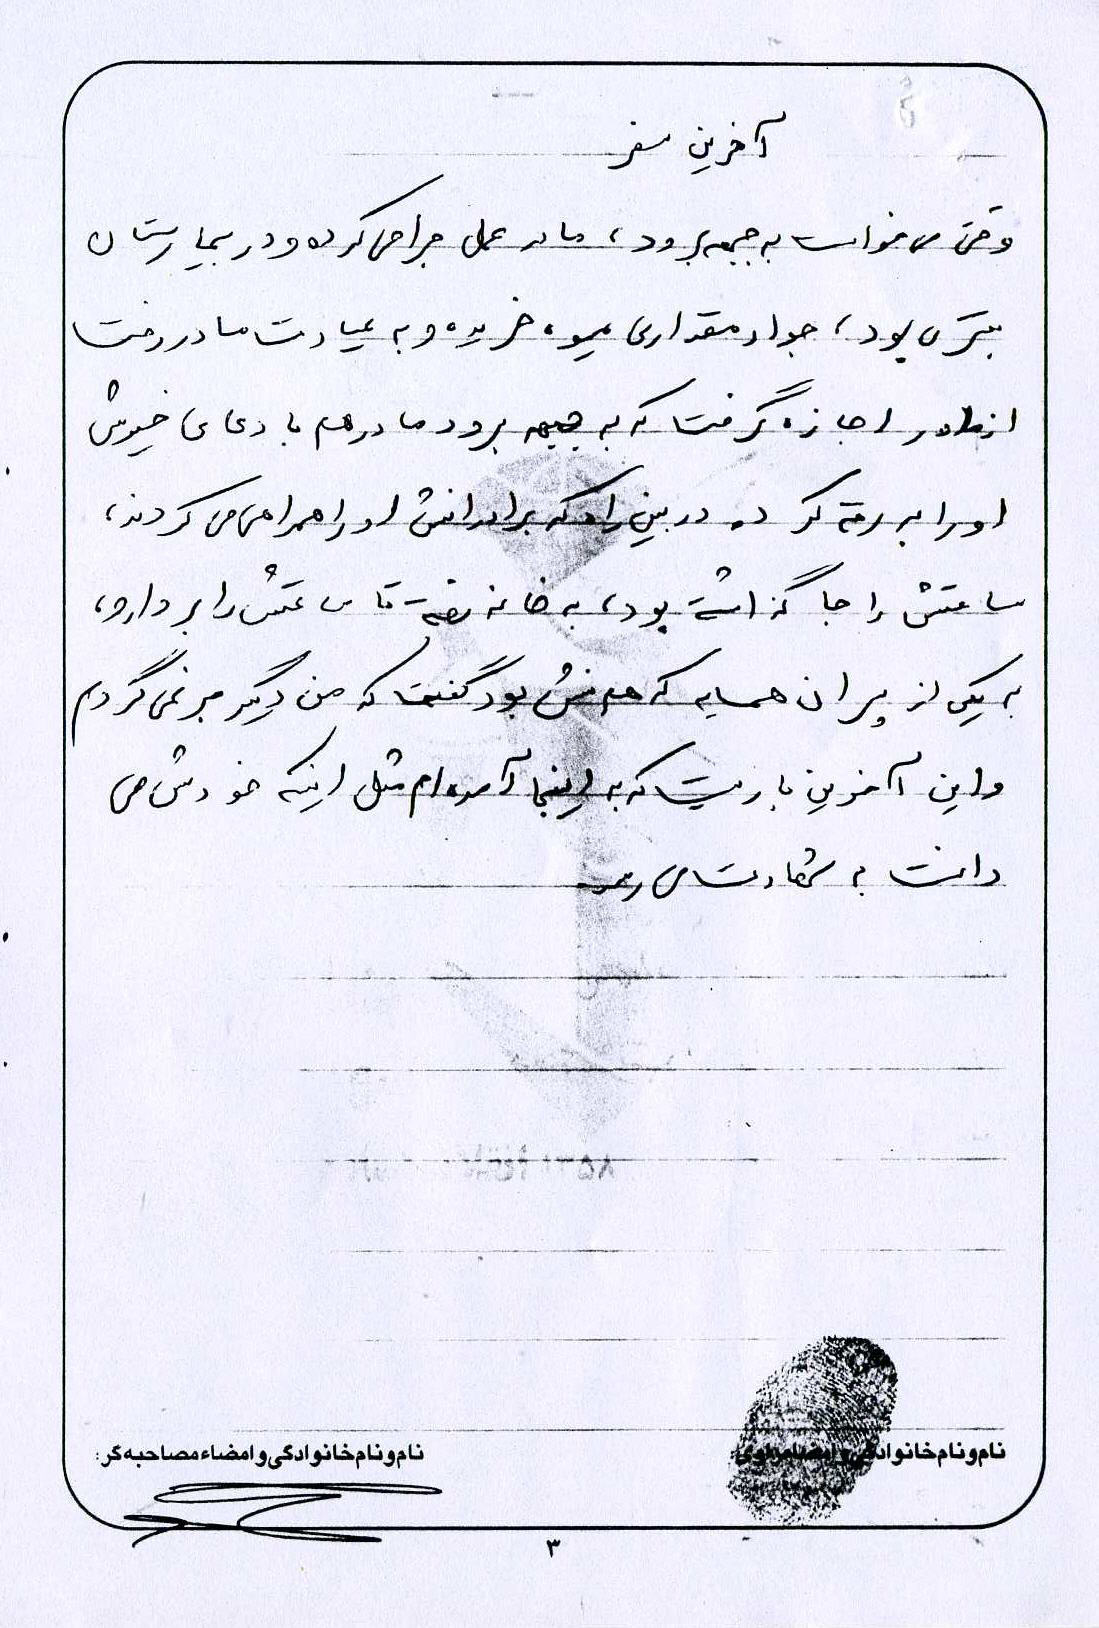 آخرین سفر
وقتی می خواست به جبهه برود، مادر عمل جراحی کرده و در بیمارستان
بستری بود، جواد مقداری میوه خریده و به عیادت مادر رفت
از مادر اجازه گرفت که به جبهه برود مادر هم با دعای خیرش
او را بدرقه کرد در بین راه که برادرانش او را همراهی می کردند،
ساعتش را جا گذاشته بود، به خانه رفت تا ساعتش را بردارد،
به یکی از پسران همسایه که هم سنش بود گفت که من دیگر بر نمی گردم
و این آخرین باریست که به اینجا آمده ام مثل اینکه خودش می
دانست به شهادت می رسد
نام و نام خانوادگی و امضاء راوی:
نام و نام خانوادگی و امضاء مصاحبه گر:
۳